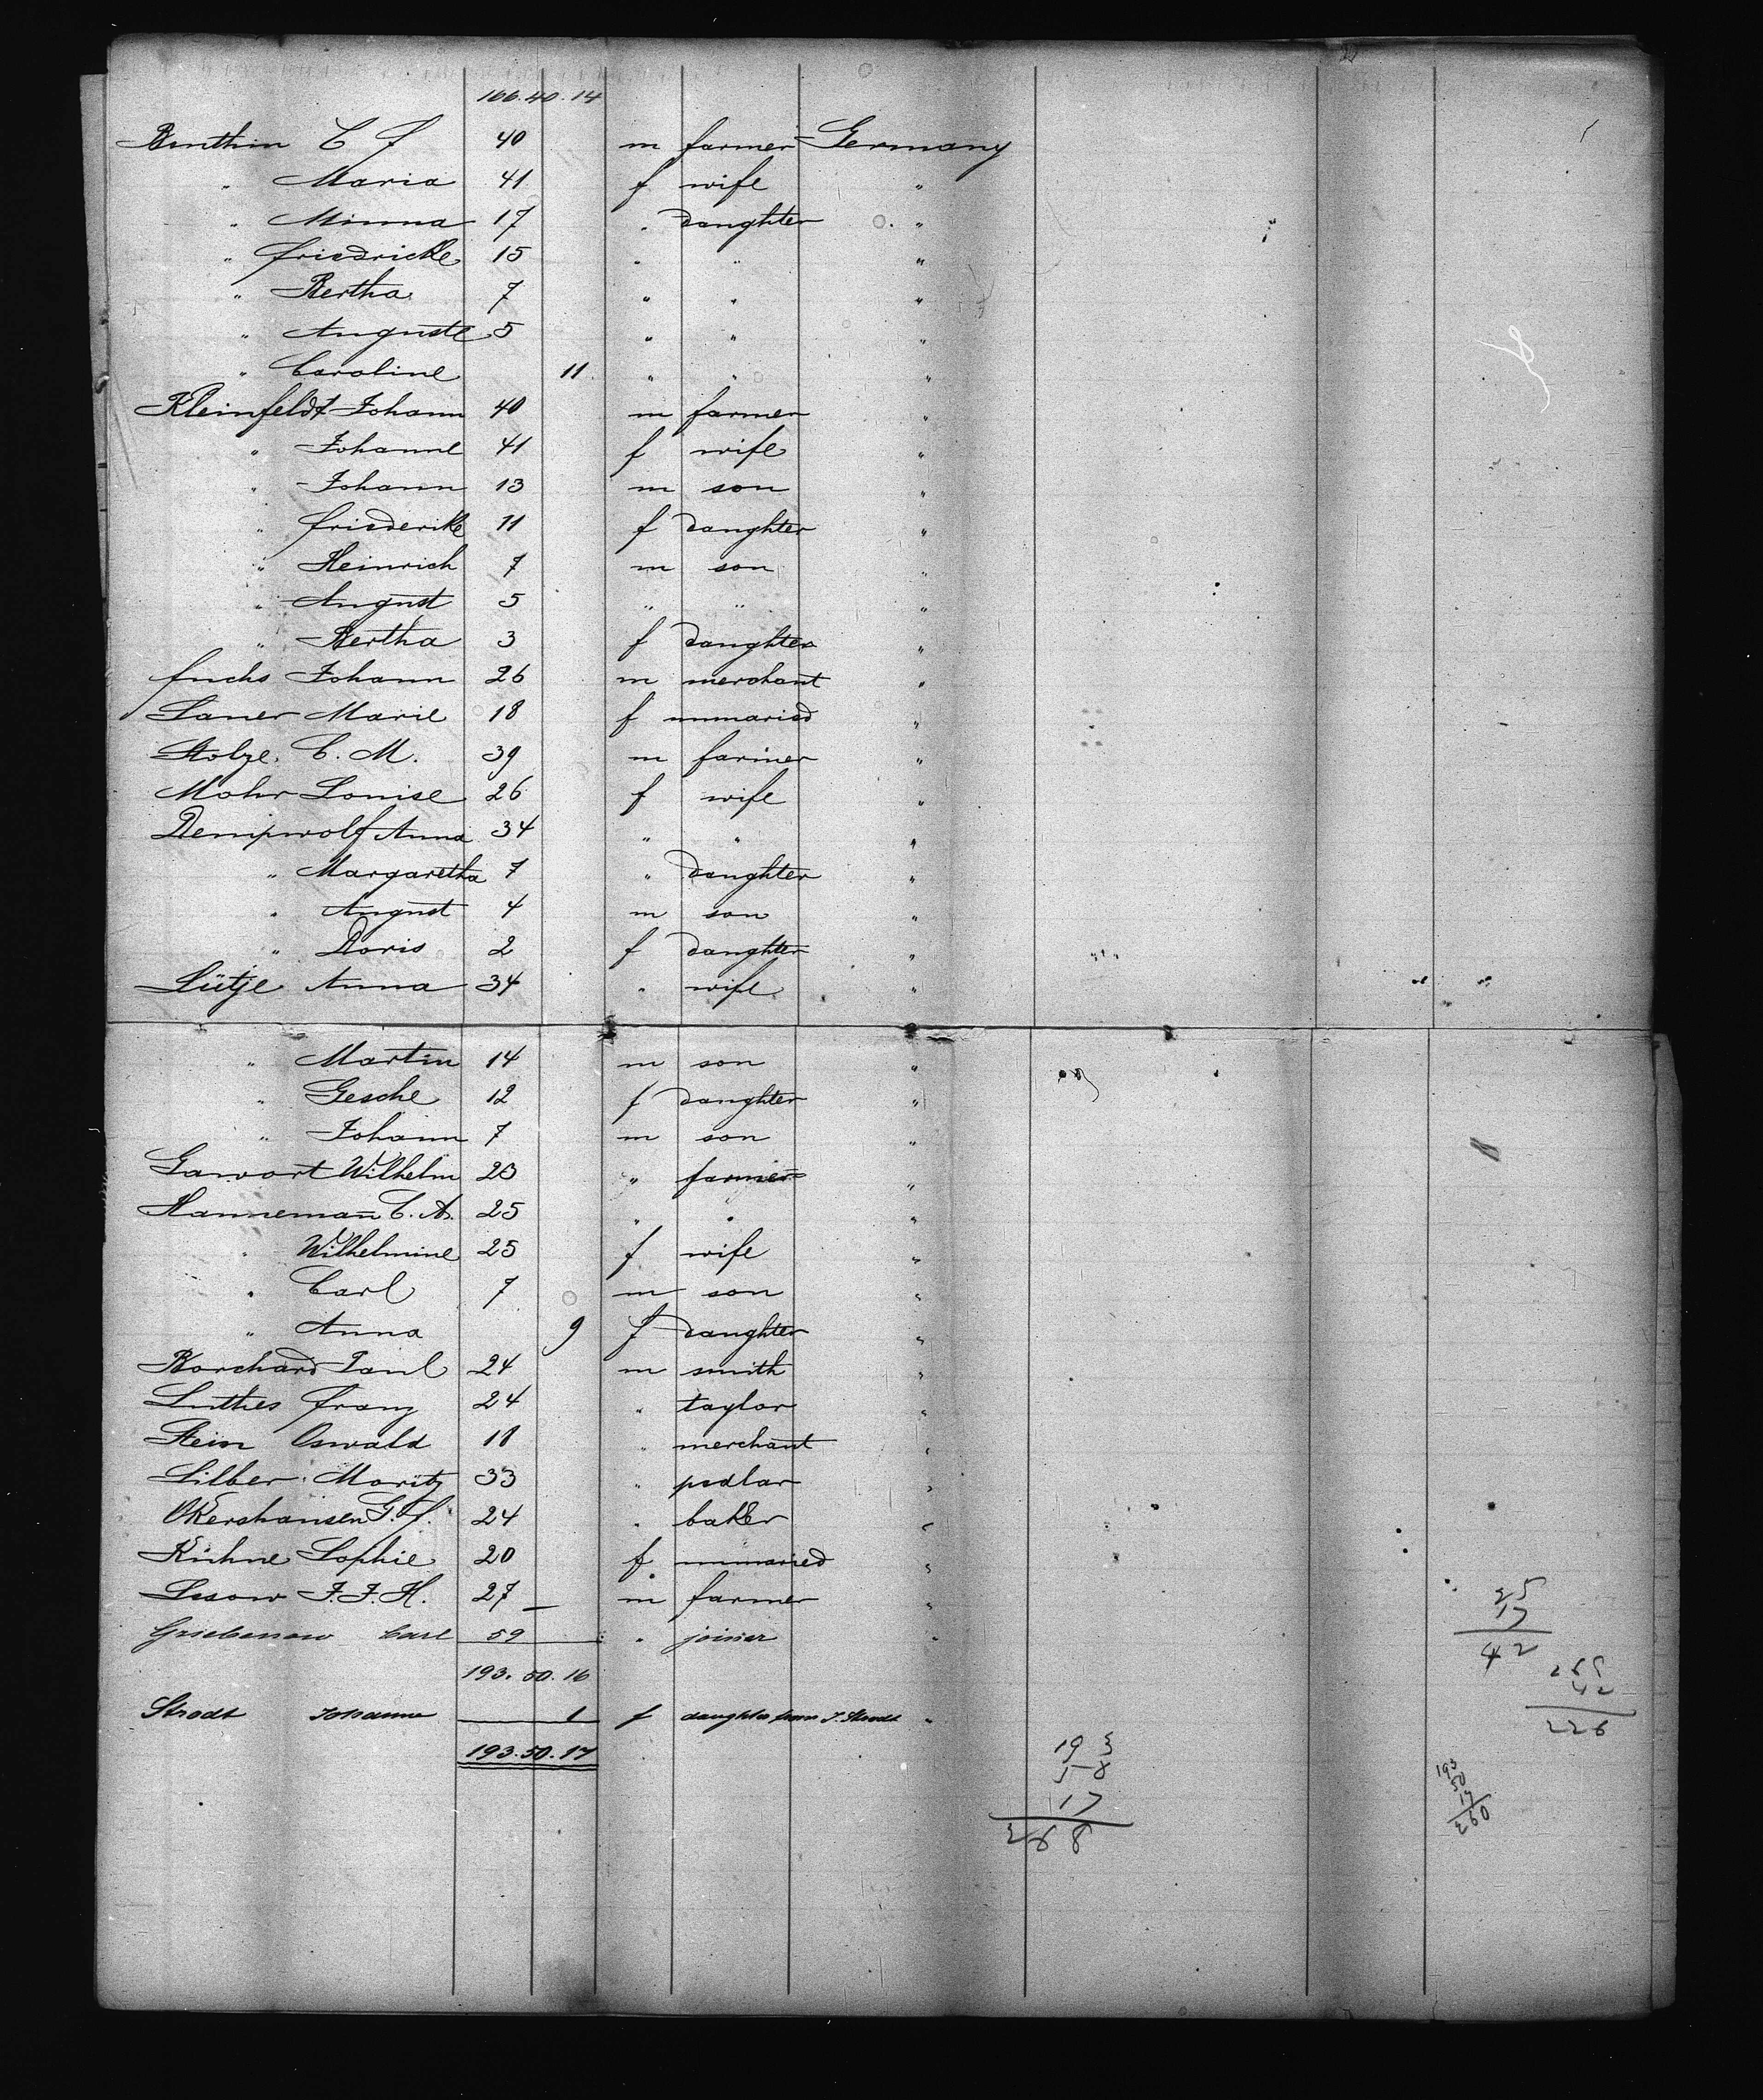 166. 40. 14
Benthin C F 40 m farmer Germany
" Maria 41 f wife "
" Minna 17 " daughter "
" Friedricke 15 " " "
" Bertha 7 " " "
" Auguste 5 " " "
" Caroline 11 " " "
Kleinfeldt Johann 40 m farmer "
" Johanne 41 f wife "
" Johann 13 m son "
" Friederike 11 f daughter "
" Heinrich 7 m son "
" August 5 " " "
" Bertha 3 f daughter "
Fuchs Johann 26 m merchant "
Lauer Marie 18 f unmaried "
Stolze. C. M. 39 m farmer "
Mohr Louise 26 f wife "
Dempwolf Anna 34 " " "
" Margaretha 7 " daughter "
" August 4 m son "
" Doris 2 f daughter "
Lütje Anna 34 " wife "
" Martin 14 m son "
" Gesche 12 f daughter "
" Johann 7 m son "
Gawort Wilhelm 23 " farmer "
Hannemann C. A. 25 " " "
" Wilhelmine 25 f wife "
" Carl 7 m son "
" Anna 9 f daughter "
Borchard Paul 24 m smith "
Luthes Franz 24 " taylor "
Stein Oswald 18 " merchant "
Silber Moritz 33 " pedlar "
Okershausen G. F. 24 " baker "
Kühne Sophie 20 f unmaried "
Lesow J. J. H. 27 m farmer "
Griebenow Carl 59 " joiner "
193. 50. 16
Strodt Johanna 1 f daughter from J. Strodt "
193. 50. 17
25
17
42
42
226
193
58
17
268
193
50
17
260